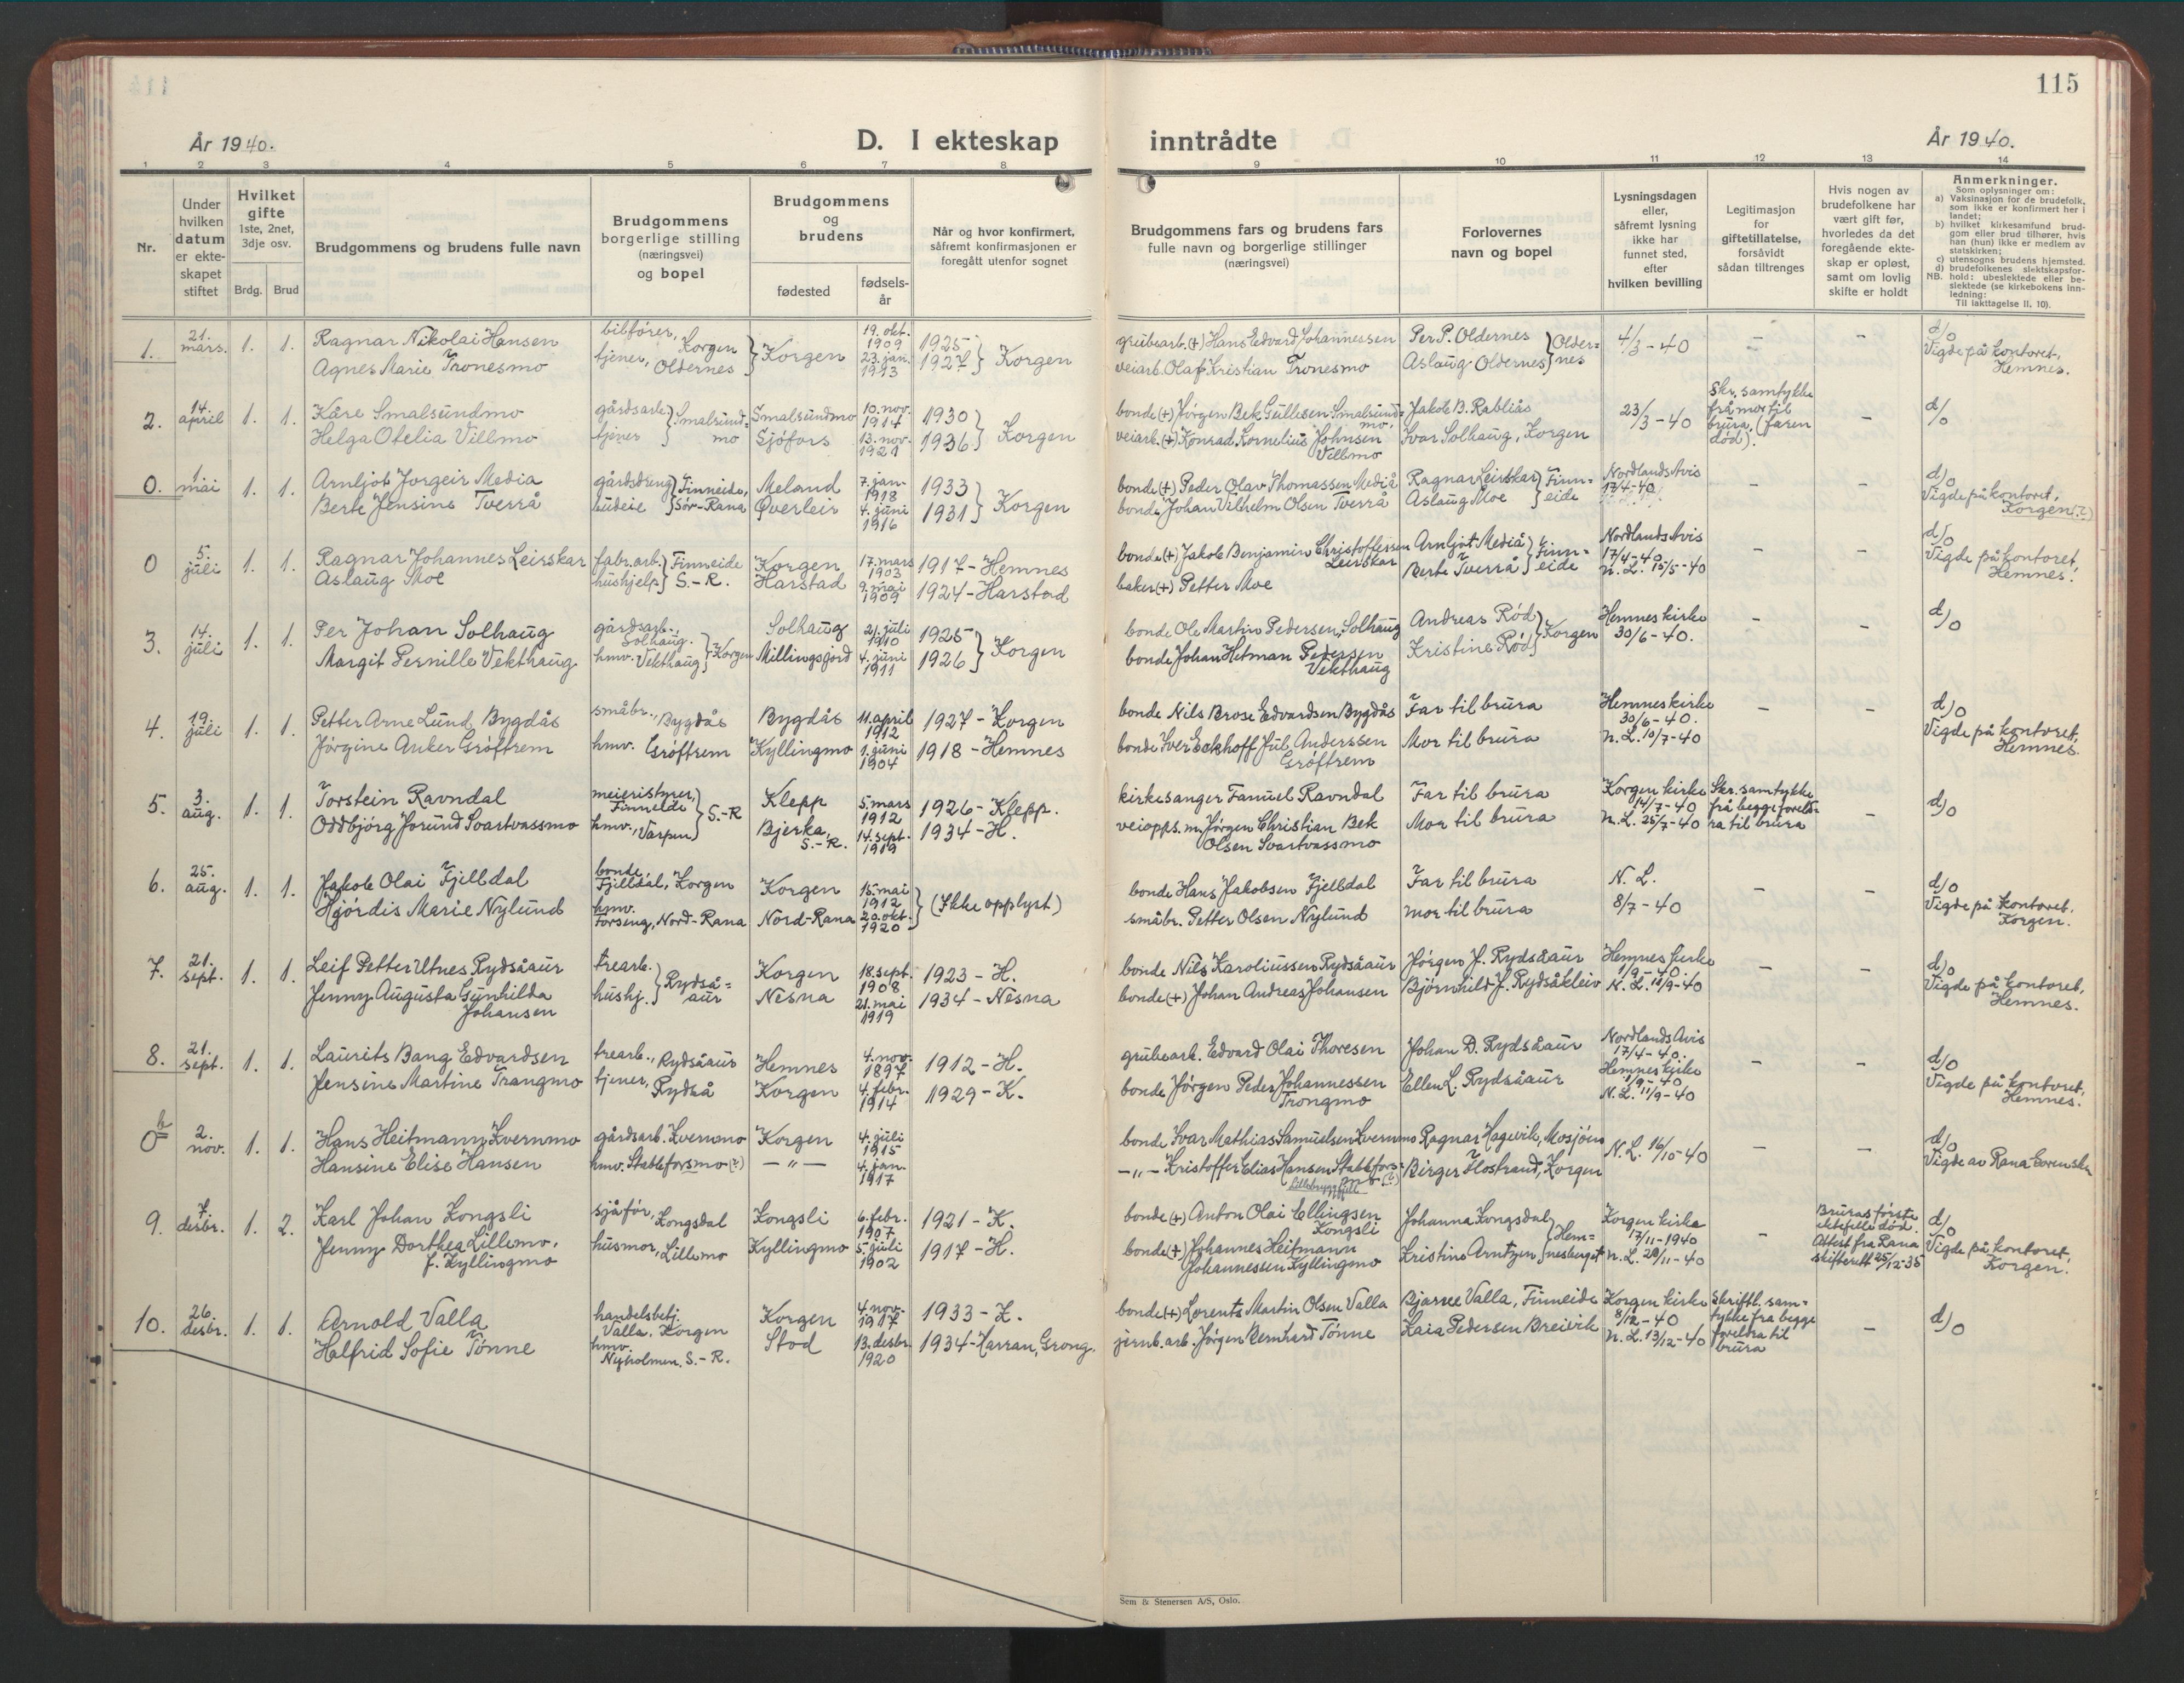 115
År 1940.
D. I ekteskap inntrådte
År 1940.
1 2 3 4 5 6 7 8 9 10 11 12 13 14
Nr.
Under hvilken datum er ekteskapet stiftet
Hvilket gifte 1ste, 2net, 3dje osv.
Brdg. Brud
Brudgommens og brudens fulle navn
Brudgommens borgerlige stilling (næringsvei) og bopel
Brudgommens og brudens
fødested
fødsels-år
Når og hvor konfirmert, såfremt konfirmasjonen er foregått utenfor sognet
Brudgommens fars og brudens fars fulle navn og borgerlige stillinger (næringsvei)
Forlovernes navn og bopel
Lysningsdagen eller, såfremt lysning ikke har funnet sted, efter hvilken bevilling
Legitimasjon for giftetillatelse, forsåvidt sådan tiltrenges
Hvis nogen av brudefolkene har vært gift før, hvorledes da det foregående ekteskap er opløst, samt om lovlig skifte er holdt
Anmerkninger.
Som oplysninger om:
a) Vaksinasjon for de brudefolk, som ikke er konfirmert her i landet;
b) hvilket kirkesamfund brudgom eller brud tilhører, hvis han (hun) ikke er medlem av statskirken;
c) utensogns brudens hjemsted.
d) brudefolkenes slektskapsforhold: ubeslektede eller beslektede (se kirkebokens innledning:
NB. Til iakttagelse II, 10).
1. 21. mars. 1. 1. Ragnar Nikolai Hansen bilfører, Korgen } Korgen 19. okt. 1909 1925 } Korgen grubearb. (+) Hans Edvard Johannessen Per P. Oldernes } Oldernes 4/3-40 – – d/o
Agnes Marie Tronesmo tjener, Oldernes 23. jan. 1913 1927 veiarb. Olaf Kristian Tronesmo Aslaug Oldernes Vigde på kontoret, Hemnes.
2. 14. april 1. 1. Kåre Smalsundmo gårdsarb. } Smalsundmo Smalsundmo 10. nov. 1914 1930 } Korgen bonde (+) Jørgen Bek Gullesen Smalsundmo, Jakob B. Rabliås 23/3-40 Skr. samtykke frå mor til brura, (faren død). – d/o
Helga Otelia Villmo tjener Sjøfors 13. nov. 1921 1936 veiarb. (+) Konrad Kornelius Johnsen Villmo Ivar Solhaug, Korgen
0. 1 mai 1. 1. Arnljot Jorgeir Media gårdsdreng } Finneide, Sør-Rana Meland 7. jan. 1918 1933 } Korgen bonde (+) Peder Olav Thomassen Mediå Ragnar Leirskar } Finneide Nordlands Avis 17/4-40 – – d/o
Berte Jensine Tverrå budeie Øverleir 4. juni 1916 1931 bonde Johan Vilhelm Olsen Tverrå Aslaug Moe Vigde på kontoret, Korgen (?)
0 5. juli 1. 1. Ragnar Johannes Leirskar fabr.arb. } Finneide S.-R. Korgen 17. mars 1903 1917 – Hemnes bonde (+) Jakob Benjamin Christoffersen Leirskar Arnljot Mediå } Finneide Nordlands Avis 17/4-40 – – d/o
Aslaug Moe hushjelp Harstad 9. mai 1909 1924 – Harstad baker (+) Petter Moe Berte Tverrå N. L. 15/5-40 Vigde på kontoret, Hemnes.
3. 14. juli 1. 1. Per Johan Solhaug gårdsarb., Solhaug. } Korgen Solhaug 21. juli 1910 1925 } Korgen bonde Ole Martin Pedersen, Solhaug Andreas Rød } Korgen Hemnes kirke 30/6-40. – – d/o
Margit Pernille Vekthaug hmv. Vekthaug Millingsjord 4. juni 1911 1926 bonde Johan Hetman Pedersen Vekthaug Kristine Rød
4. 19. juli 1. 1. Petter Arne Lund Bygdås småbr., Bygdås Bygdås 11. april 1912 1927 – Korgen bonde Nils Brose Edvardsen Bygdås Far til brura Hemnes kirke 30/6-40. – – d/o
Jørgine Anker Grøftrem hmv. Grøftrem Kyllingmo 1. juni 1904 1918 – Hemnes bonde Iver Eckhoff Jul. Anderssen Grøftrem Mor til brura N. L. 10/7-40 Vigde på kontoret, Hemnes.
5. 3. aug. 1. 1. Torstein Ravndal meieristyrer, Finneide } S.-R Klepp 5. mars 1912 1926 – Klepp. kirkesanger Fanuel Ravndal Far til brura Korgen kirke 14/7-40 Skr. samtykke frå begge foreldra til brura – d/o
Oddbjørg Jorund Svartvassmo hmv., Varpen Bjerka, S.-R. 14. sept. 1919 1934 – H. veiopps.m. Jørgen Christian Bek Olsen Svartvassmo Mor til brura N. L. 25/7-40
6. 25. aug. 1. 1. Jakob Olai Fjelldal bonde, Fjelldal, Korgen Korgen 15. mai 1912 } (Ikke opplyst) bonde Hans Jakobsen Fjelldal Far til brura N. L. 8/7-40 – – d/o
Hjørdis Marie Nylund hmv. Torseng, Nord-Rana Nord-Rana 20. okt. 1920 småbr. Petter Olsen Nylund mor til brura Vigde på kontoret, Korgen.
7. 21. sept. 1. 1. Leif Petter Utnes Rydsåaur trearb. } Rydsåaur Korgen 18. sept. 1908 1923 – H. bonde Nils Karoliussen Rydsåaur Jørgen J. Rydsåaur Hemnes kirke 1/9-40. – – d/o
Jenny Augusta Gunhilda Johansen hushj. Nesna 21. mai 1919 1934 – Nesna bonde (+) Johan Andreas Johansen Bjørnhild J. Rydsåkleiv N. L. 11/9-40 Vigde på kontoret, Hemnes.
8. 21. sept. 1. 1. Laurits Bang Edvardsen trearb., Rydsåaur Hemnes 4. nov. 1897 1912 – H. grubearb. Edvard Olai Thoresen Johan D. Rydsåaur Nordlands Avis 17/4-40. Hemnes kirke 1/9-40 – – d/o
Jensine Martine Trangmo tjener, Rydså Korgen 4. febr. 1914 1929 – K. bonde Jørgen Peder Johannessen Trongmo Ellen L. Rydsåaur N. L. 11/9-40 Vigde på kontoret, Hemnes.
0 2. nov. 1. 1. Hans Heitmann Kvernmo gårdsarb. Kvernmo Korgen 4. juli 1915 bonde Ivar Mathias Samuelsen Kvernmo Ragnar Hagevik, Mosjøen N. L. 16/10-40 – – d/o
Hansine Elise Hansen hmv. Stableforsmo (?) –"– 4. jan. 1917 –"– Kristoffer Elias Hansen Stableforsmo (?) Birger Flostrand, Korgen Vigde av Rana Sorenskr.
9. 7. desbr. 1. 2. Karl Johan Kongsli sjåfør, Kongsdal Kongsli 6. febr. 1907 1921 – K. bonde (+) Anton Olai Ellingsen Kongsli Johanna Kongsdal } Hemnesberget Korgen kirke 17/11-1940 – Bruras første ektefelle død. Attest fra Rana skifterett 25/12-35 d/o
Jenny Dorthea Lillemo, f. Kyllingmo husmor, Lillemo Kyllingmo 5. juli 1902 1917 – H. bonde (+) Johannes Heitmann Johannessen Kyllingmo Kristine Arntzen N. L. 28/11-40 Vigde på kontoret, Korgen.
10. 26. desbr. 1. 1. Arnold Valla handelsbetj. Valla, Korgen Korgen 4. nov. 1917 1933 – K. bonde (+) Lorents Martin Olsen Valla Bjarne Valla, Finneide Korgen kirke 8/12-40 Skriftl. samtykke fra begge foreldra til brura – d/o
Halfrid Sofie Tønne hmv. Nyholmen, S.-R. Stod 13. desbr. 1920 1934 – Harran, Grong. jernb.arb. Jørgen Bernhard Tønne Kaia Pedersen Breivik N. L. 13/12-40
Sem & Stenersen A/S, Oslo.